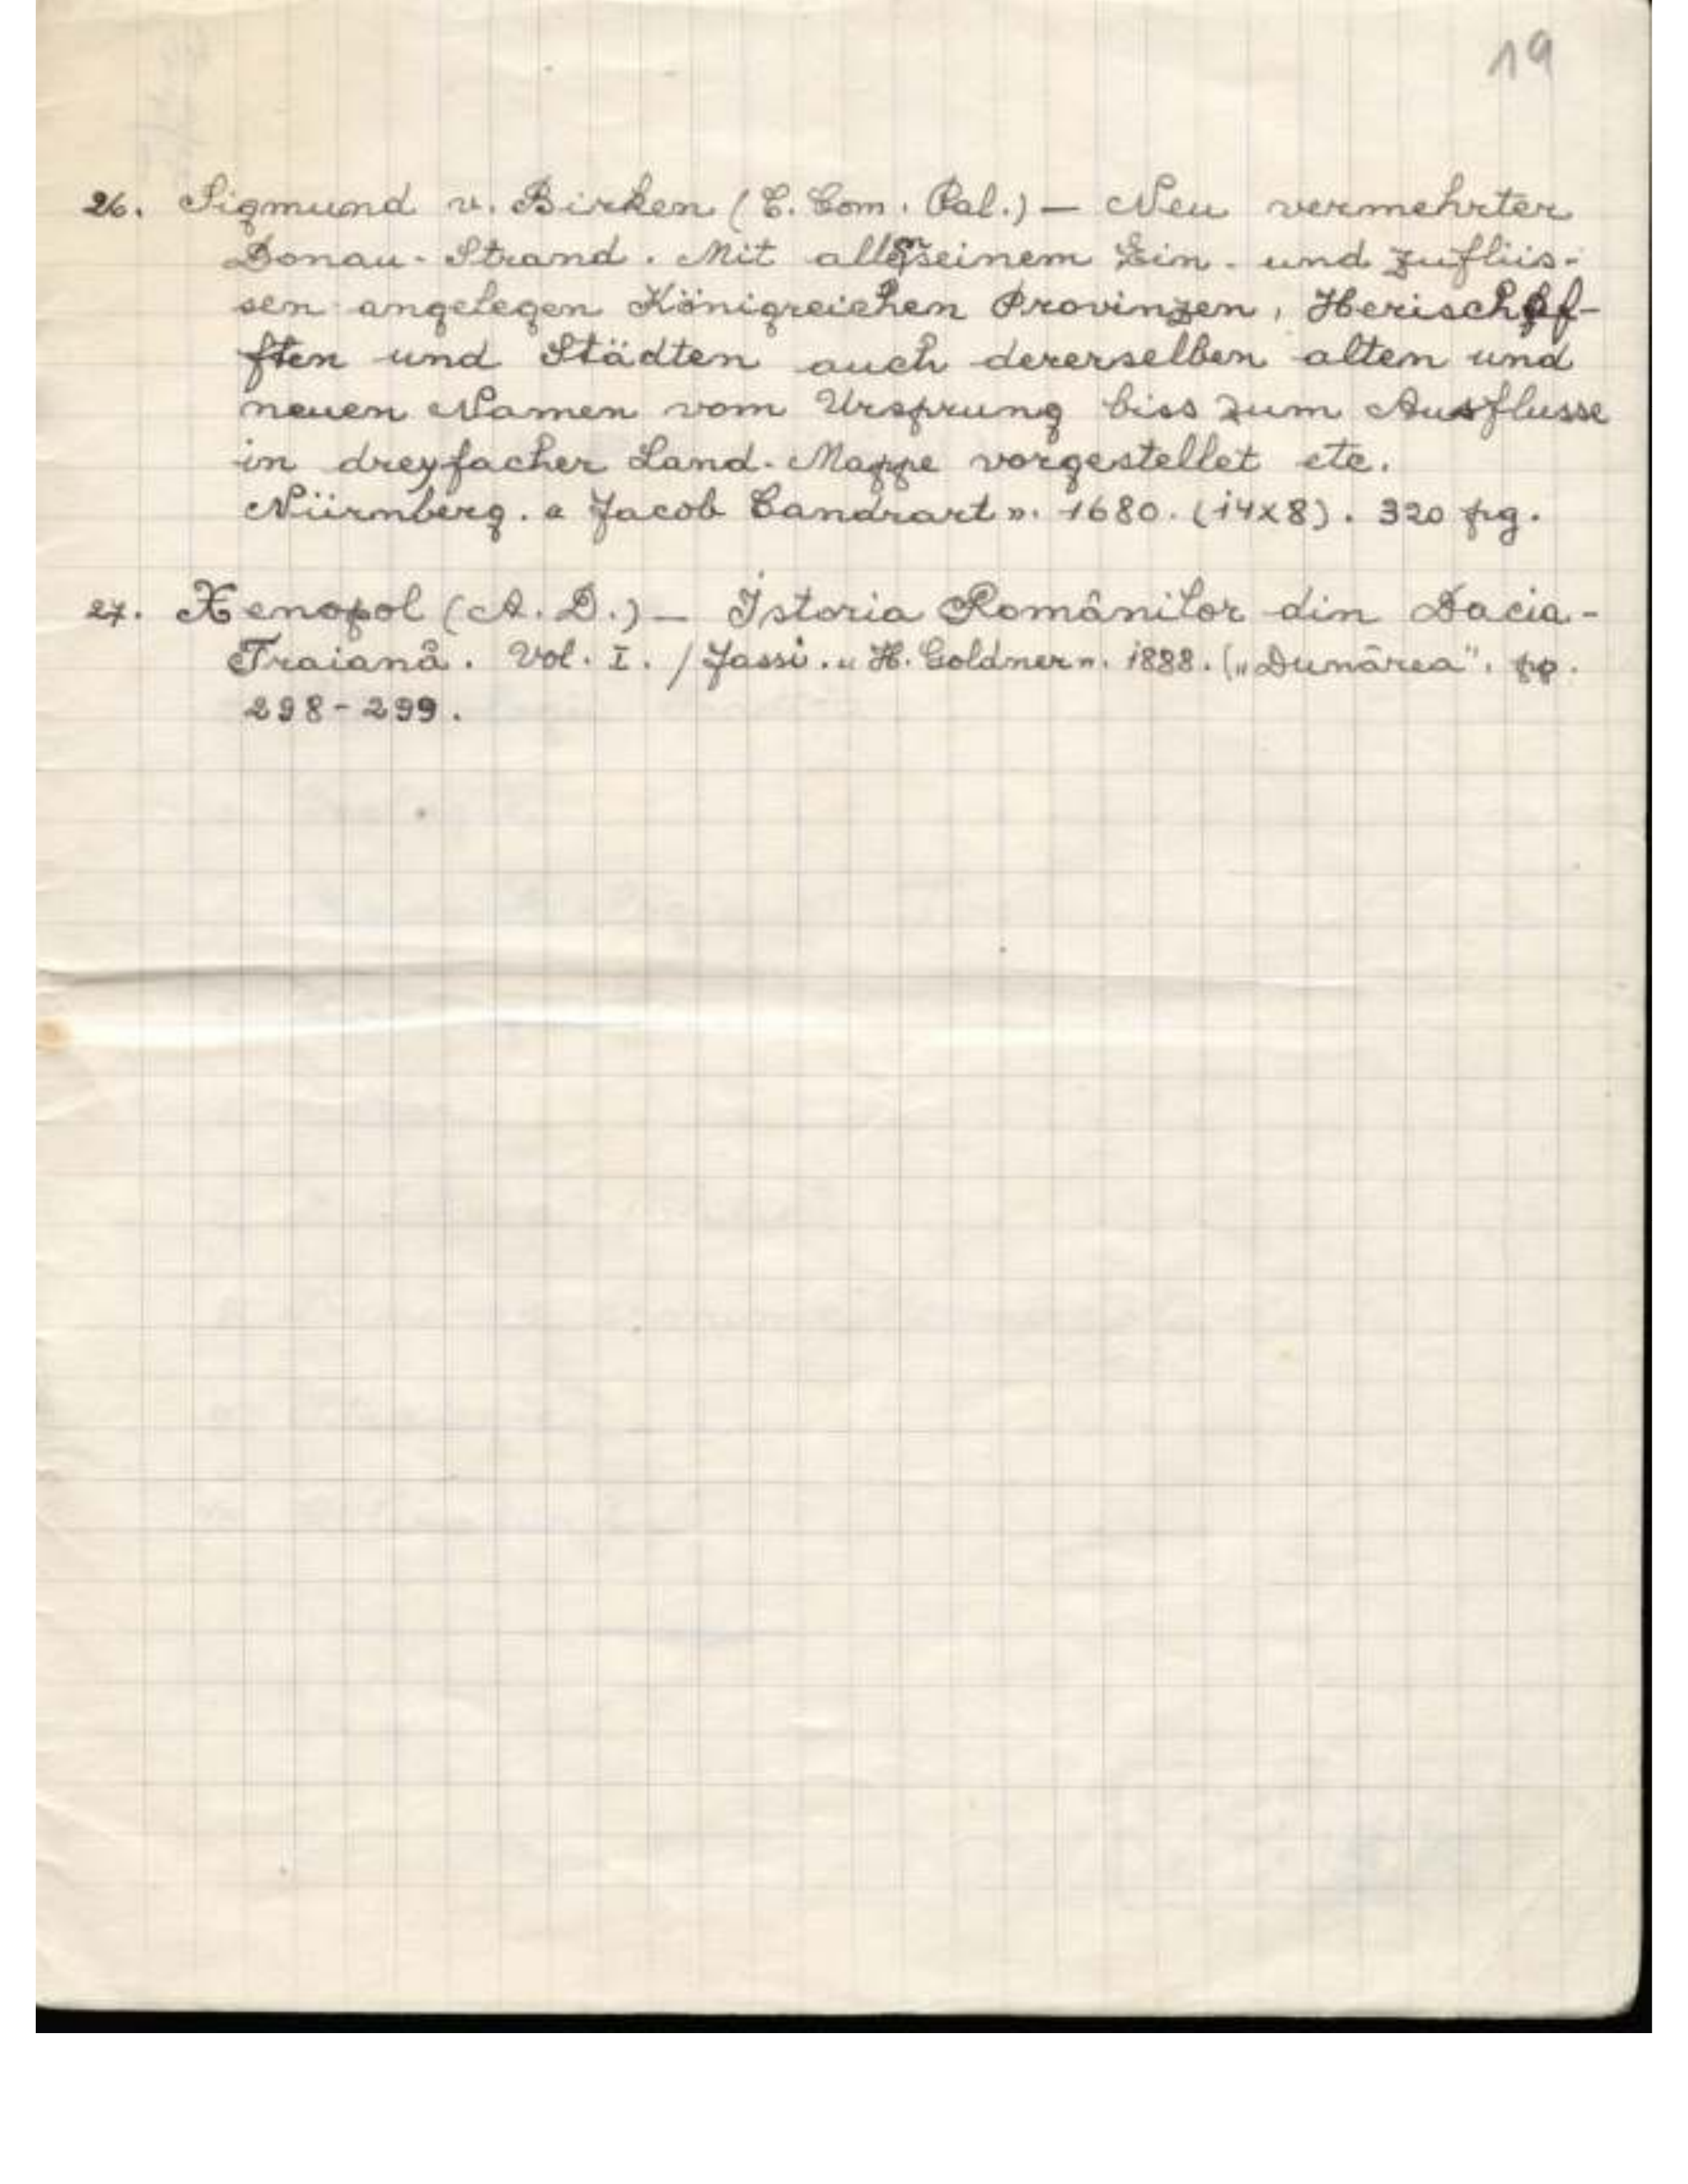 19
26. Sigmund v. Birken (C. Com. Pal.) — Neu vermehrter
Donau-Strand. Mit allen seinem Ein- und Zuflüs-
sen angelegen Königreichen Provinzen, Herischaf-
ften und Städten auch dererselben alten und
neuen Namen vom Ursprung biss zum Ausflusse
in dreyfacher Land-Mappe vorgestellet etc.
Nürnberg. « Jacob Candrart ». 1680. (14x8). 320 pg.
27. Xenopol (A. D.) — Istoria Românilor din Dacia-
Traiană. Vol. I. / Jassi. « H. Goldner ». 1888. („Dunărea". pp.
298-299.